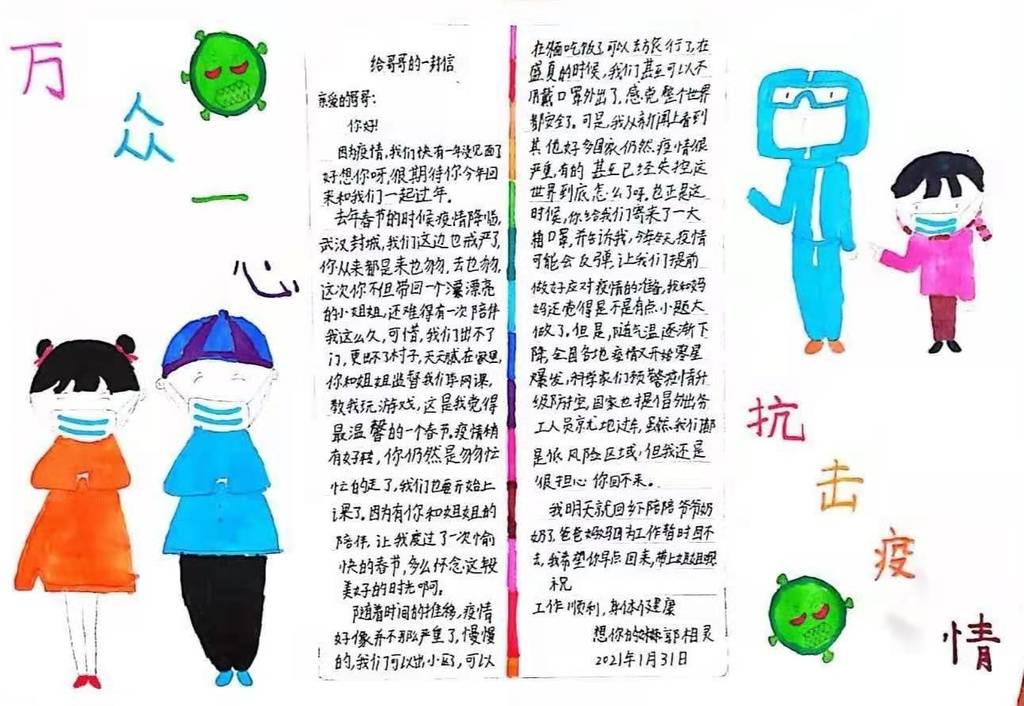 万
众
一
心
给哥哥的一封信
亲爱的哥哥:
你好!
因为疫情,我们快有一年没见面了
好想你呀,很期待你今年回
来和我们一起过年。
去年春节的时候疫情降临,
武汉封城,我们这边也戒严了,
你从来都是来也匆匆,去也匆匆,
这次你不但带回一个漂漂亮
的小姐姐,还难得有一次陪伴
我这么久,可惜,我们出不了
门,更出不了村子,天天腻在家里,
你和姐姐监督我们学网课,
教我玩游戏,这是我觉得
最温馨的一个春节。疫情稍
有好转,你仍然是匆匆忙
忙的走了,我们也重开始上
课了。因为有你和姐姐的
陪伴,让我度过了一次愉
快的春节,多么怀念这段
美好的时光啊。
随着时间的推移,疫情
好像并不那么严重了,慢慢
的,我们可以出小区了,可以
在酒吃饭了可以去旅行了,在
盛夏的时候,我们甚至可以不
用戴口罩外出了,感觉整个世界
都安全了。可是,我从新闻上看到
其他好多国家仍然疫情很
严重,有的甚至已经失控,这
世界到底怎么了呀。也正是这
时候,你给我们寄来了一大
箱口罩,并告诉我,今年冬天,疫情
可能会反弹,让我们提前
做好应对疫情的准备,我和妈
妈还觉得是不是有点小题大
做了。但是,随气温逐渐下
降,全国各地疫情又开始零星
爆发,科学家们预警疫情升
级防控,国家也提倡外出务
工人员就地过年,虽然我们都
是低风险区域,但我还是
很担心你回不来。
我明天就回乡陪陪爷爷奶
奶了,爸爸妈妈因为工作暂时回不
去,我希望你早点回来,带上姐姐
祝
工作顺利,身体健康
想你的妹妹郭相灵
2021年1月31日
抗
击
疫
情